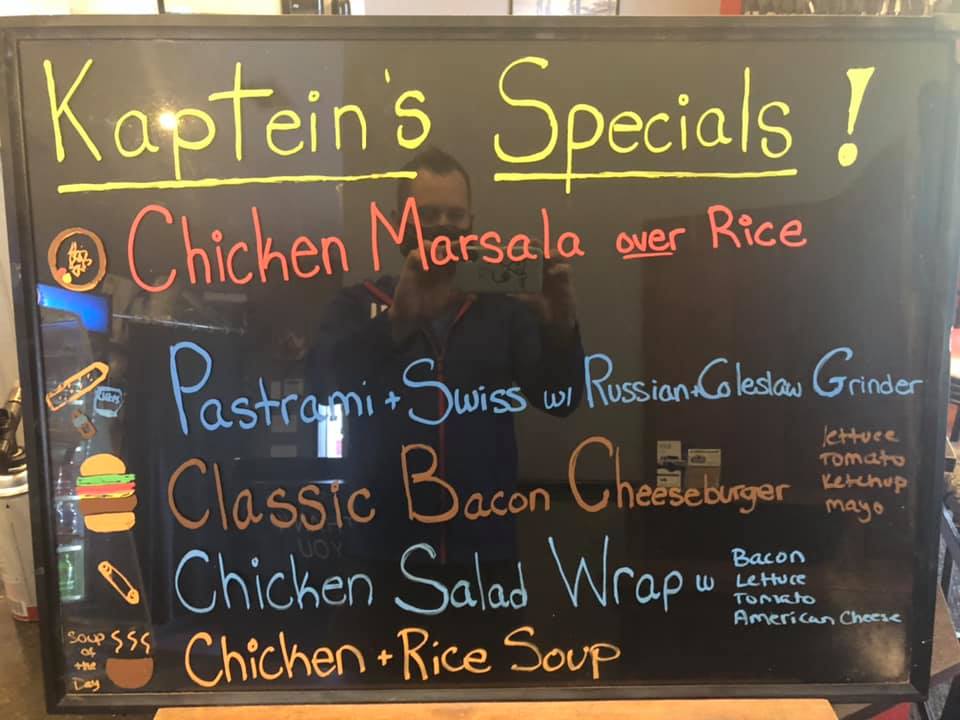 Kaptein's Specials!
Chicken Marsala over Rice
Pastrami + Swiss w/ Russian + Coleslaw Grinder
Classic Bacon Cheeseburger
lettuce
Tomato
Ketchup
mayo
Chicken Salad Wrap w
Bacon
Lettuce
Tomato
American Cheese
Soup
of
the
Day
Chicken + Rice Soup